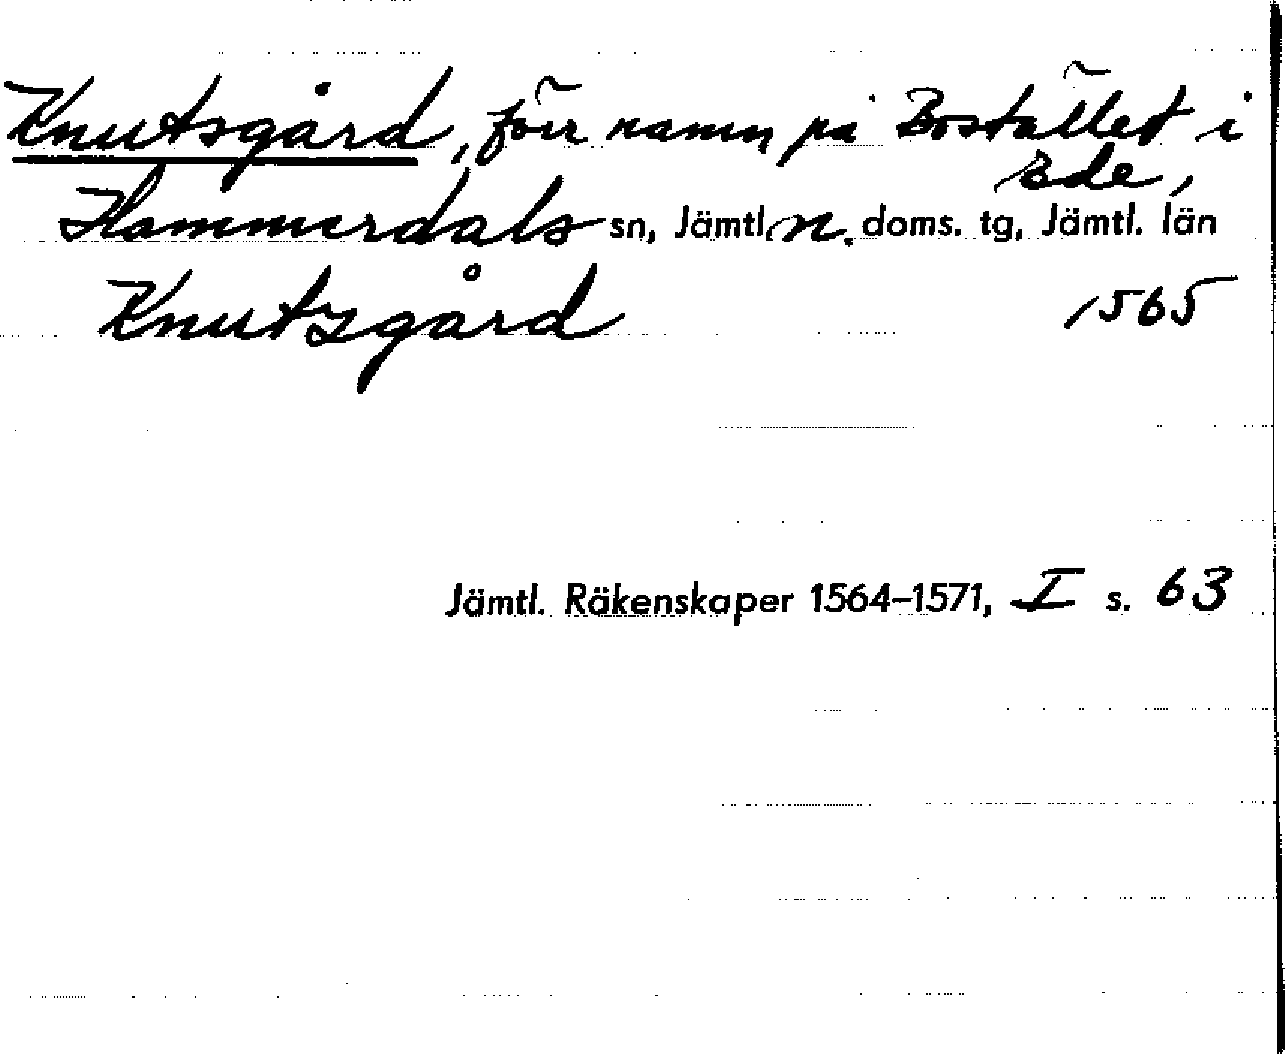 Knutsgård, förr namn på Bostället i
Ede,
Hammerdals sn, Jämtl. n. doms. tg, Jämtl. län
Knutzgård 1565
Jämtl. Räkenskaper 1564–1571, I s. 63